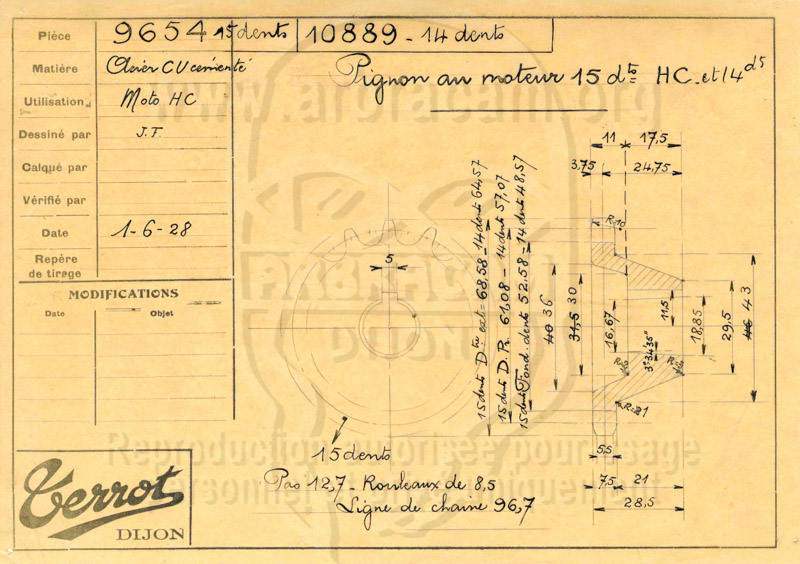 Pièce 9654 15 dents 10889 - 14 dents
Matière Acier CU cémenté
Utilisation Moto HC
Dessiné par J.F.
Calqué par
Vérifié par
Date 1-6-28
Repère
de tirage
MODIFICATIONS
Date Objet
Pignon au moteur 15 dts = HC - et 14 dts
11 17,5
3,75 24,75
R=10
5
15 dents Dtre ext = 68,58 - 14 dents 64,57
15 dents D. Pr. 61,08 - 14 dents 57,07
15 dents Fond. dents 52.58 - 14 dents 48,57
40 36
31,5 30
16,67
3°34'35"
11,5
18,85
29,5
46 43
R=21
5,5
7,5 21
28,5
15 dents
Pas 12,7 - Rouleaux de 8,5
Ligne de chaine 96,7
Terrot
DIJON
www.arbracam.org
ARBRACAM
DIJON
Reproduction autorisée pour usage
personnel et uniquement